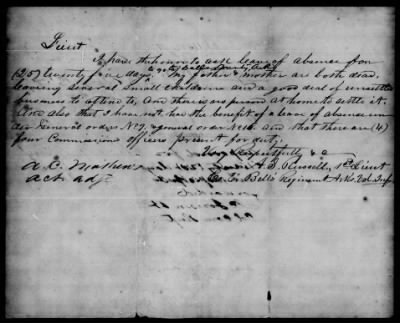 Lieut
I have the honor to ask leave of absence for
to go to Dallas County Arks
(25) twenty five days. My father & mother are both dead
leaving several small children and a good deal of unsettled
business to attend to, and there is no person at home to settle it.
And also that I have not had the benefit of a leave of absence un-
der General order No 9, general order No 16. and that there are (4)
four Commissioned officers present for duty.
Very Respectfully &c
A. S. Russell, 1st Lieut
Co. Bell's Regiment Arks. Vol. Inf
A. C.
Act. Adj